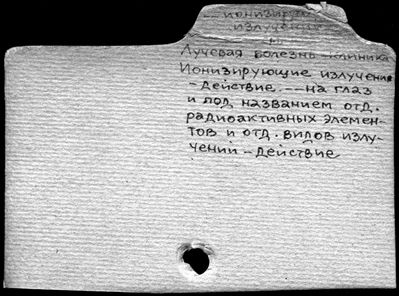 --- ионизирую
излучения
и
Лучевая болезнь - клиника
Ионизирующие излучения
- действие. --- на глаз
и под названием отд.
радиоактивных элемен-
тов и отд. видов излу-
чений - действие